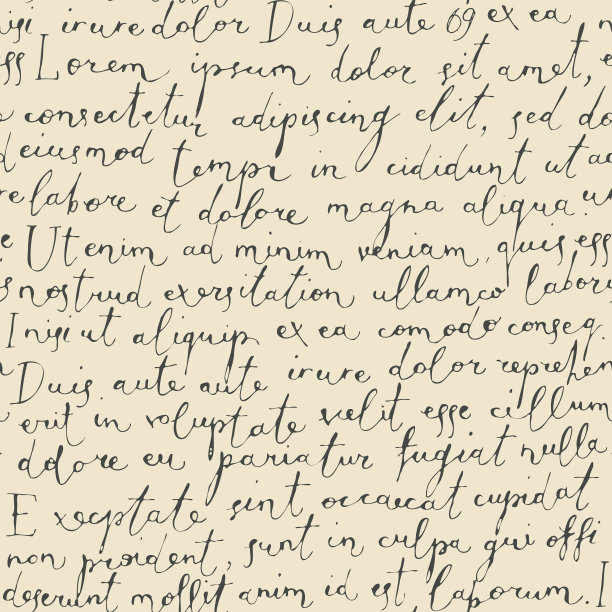 nisi irure dolor Duis aute ex ea
Lorem ipsum dolor sit amet,
consectetur adipiscing elit, sed do
eiusmod tempr in cididunt ut ad
labore et dolore magna aliqua. un
Ut enim ad minim veniam, quis ess
nostrud exersitation ullamco labori
Inisi ut aliquip ex ea comodo conseq.
Duis. aute aute irure dolor reprehen
erit in voluptate velit esse cillum
dolore eu pariatur fugiat nulla
Execptate sint occaecat cupidat
non proident, sunt in culpa qui offi
deserunt mollit anim id est laborum. I